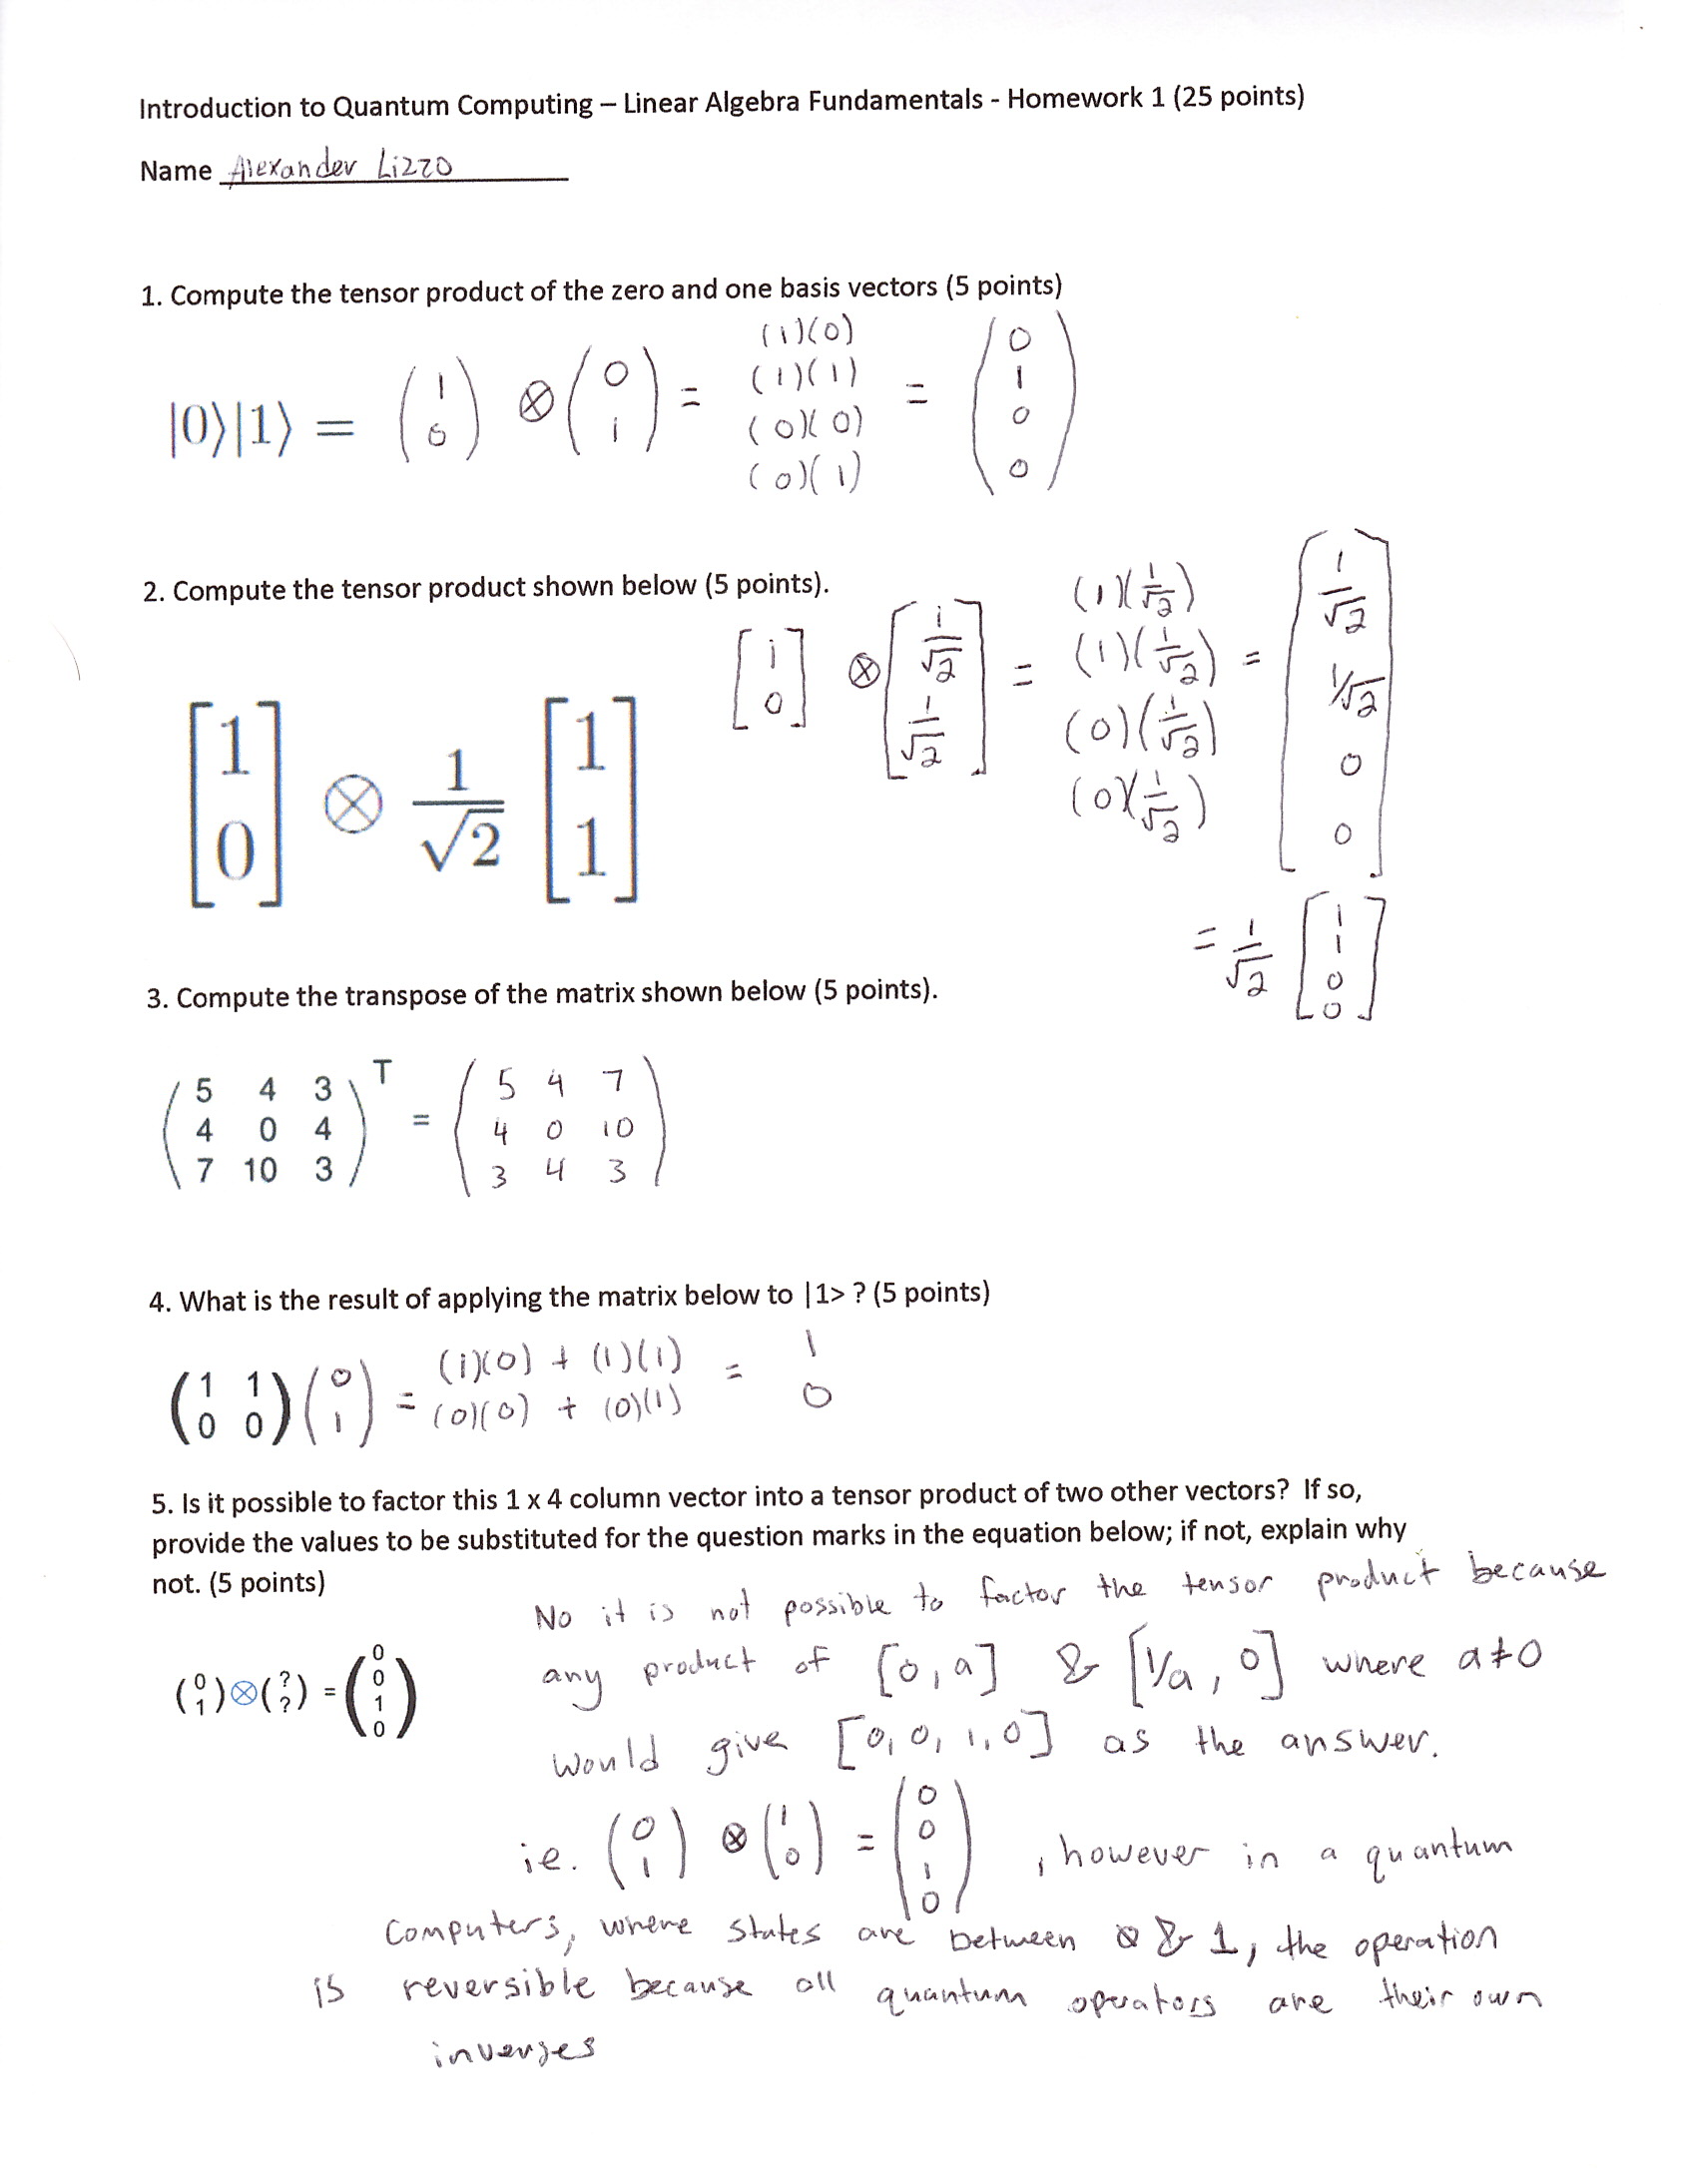 Introduction to Quantum Computing – Linear Algebra Fundamentals - Homework 1 (25 points)
Name Alexander Lizzo
1. Compute the tensor product of the zero and one basis vectors (5 points)
|0⟩|1⟩ = (1 0) ⊗ (0 1) = (1)(0) (1)(1) (0)(0) (0)(1) = (0 1 0 0)
2. Compute the tensor product shown below (5 points).
[1 0] ⊗ 1/√2 [1 1]
[1 0] ⊗ [1/√2 1/√2] = (1)(1/√2) (1)(1/√2) (0)(1/√2) (0)(1/√2) = [1/√2 1/√2 0 0]
= 1/√2 [1 1 0 0]
3. Compute the transpose of the matrix shown below (5 points).
(5 4 3
4 0 4
7 10 3)T = (5 4 7
4 0 10
3 4 3)
4. What is the result of applying the matrix below to |1> ? (5 points)
(1 1
0 0) (0 1) = (1)(0) + (1)(1) = 1
(0)(0) + (0)(1) 0
5. Is it possible to factor this 1 x 4 column vector into a tensor product of two other vectors? If so,
provide the values to be substituted for the question marks in the equation below; if not, explain why
not. (5 points)
(0 1) ⊗ (? ?) = (0 0 1 0)
No it is not possible to factor the tensor product because
any product of [0, a] & [1/a, 0] where a≠0
would give [0, 0, 1, 0] as the answer.
ie. (0 1) ⊗ (1 0) = (0 0 1 0), however in a quantum
computers, where states are between 0 & 1, the operation
is reversible because all quantum operators are their own
inverses